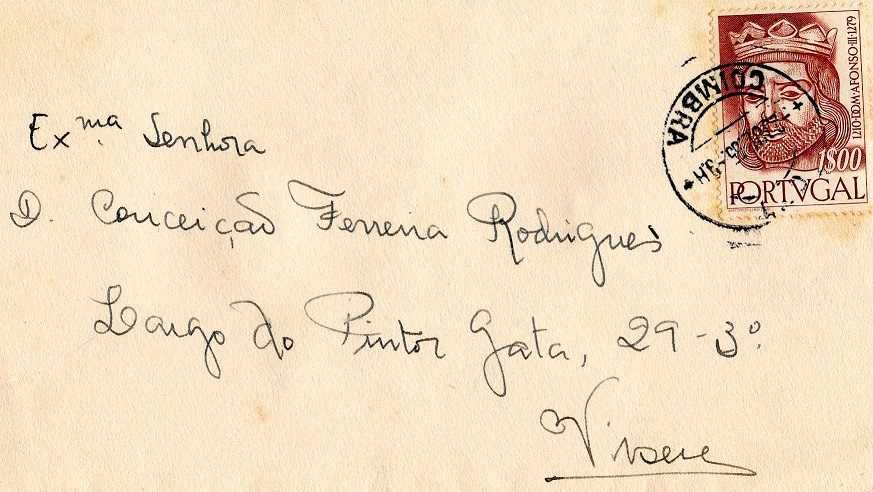 Exma. Senhora
D. Conceição Ferreira Rodrigues
Largo do Pintor Gata, 29-3º.
Viseu
COIMBRA
1210·D·M·AFONSO·III·1279
1$00
PORTVGAL